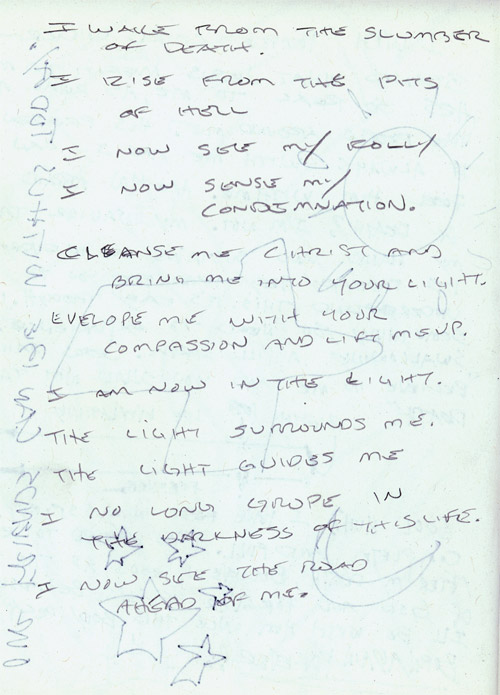 I WAKE FROM THE SLUMBER
OF DEATH.
I RISE FROM THE PITS
OF HELL
I NOW SEE MY FOLLY
I NOW SENSE MY
CONDEMNATION.
CLEANSE ME CHRIST AND
BRING ME INTO YOUR LIGHT.
EVELOPE ME WITH YOUR
COMPASSION AND LIFT ME UP.
I AM NOW IN THE LIGHT.
THE LIGHT SURROUNDS ME.
THE LIGHT GUIDES ME
I NO LONG GROPE IN
THE DARKNESS OF THIS LIFE.
I NOW SEE THE ROAD
AHEAD OF ME.